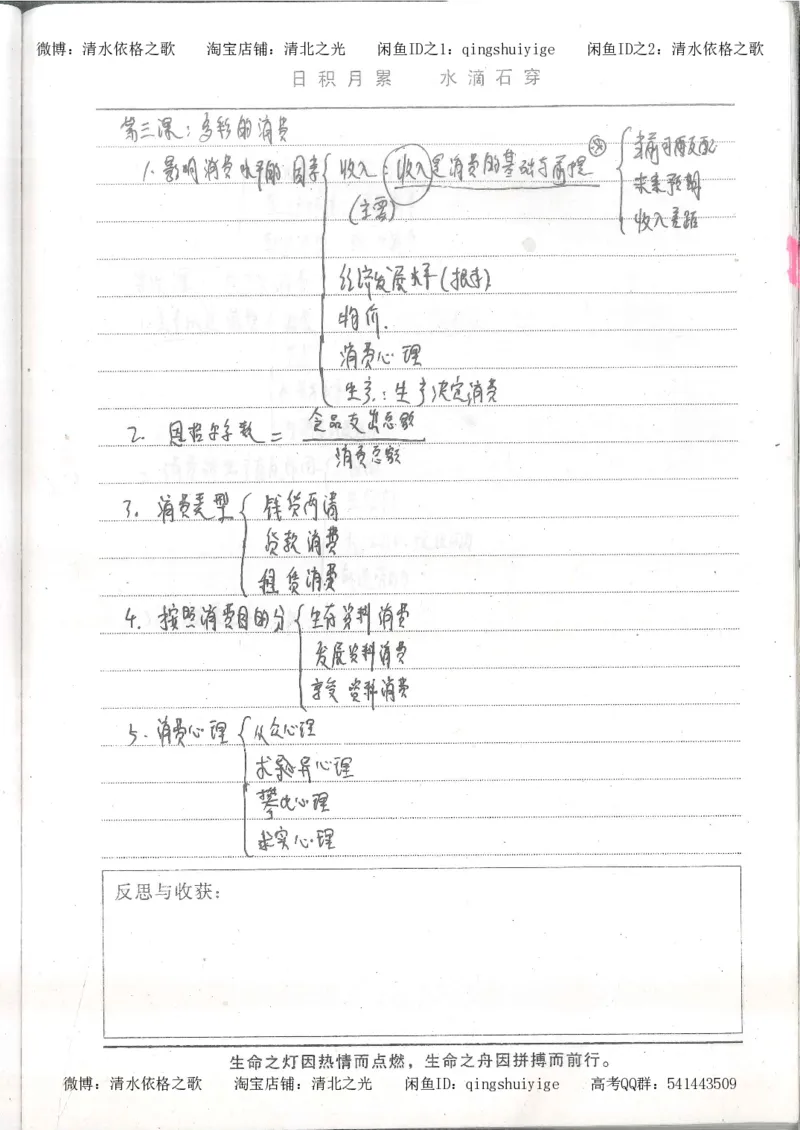 微博：清水依格之歌 淘宝店铺：清北之光 闲鱼ID之1：qingshuiyige 闲鱼ID之2：清水依格之歌
日积月累 水滴石穿
第三课：多彩的消费
1. 影响消费水平的因素 { 收入：收入是消费的基础与前提 { 当前可支配
(主要) 未来预期
收入差距
经济发展水平(根本)
物价
消费心理
生产：生产决定消费
2. 恩格尔系数 = 食品支出总额
消费总额
3. 消费类型 { 钱货两清
贷款消费
租赁消费
4. 按照消费目的分 { 生存资料消费
发展资料消费
享受资料消费
5. 消费心理 { 从众心理
求异心理
攀比心理
求实心理
反思与收获：
生命之灯因热情而点燃，生命之舟因拼搏而前行。
微博：清水依格之歌 淘宝店铺：清北之光 闲鱼ID：qingshuiyige 高考QQ群：541443509